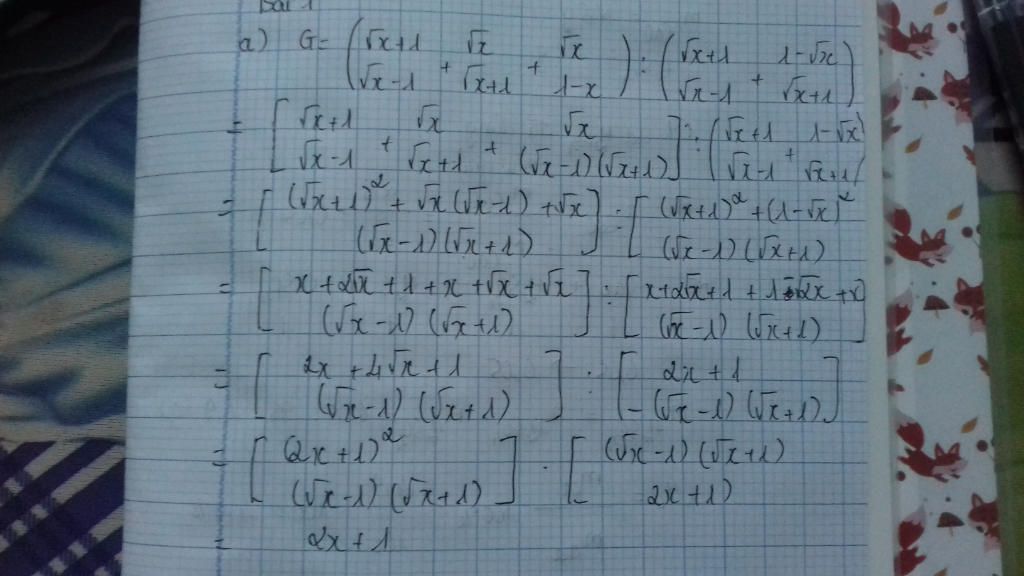 Bài 1
a) G = (√x+1 √x √x) : (√x+1 1-√x)
(√x-1 + √x+1 + 1-x) (√x-1 + √x+1)
= [√x+1 √x √x] : (√x+1 1-√x)
[√x-1 + √x+1 + (√x-1)(√x+1)] (√x-1 + √x+1)
= [(√x+1)² + √x(√x-1) + √x] : [(√x+1)² + (1-√x)²]
[(√x-1)(√x+1)] [(√x-1)(√x+1)]
= [x+2√x+1+x+√x+√x] : [x+2√x+1+1-2x+x]
[(√x-1)(√x+1)] [(√x-1)(√x+1)]
= [2x+4√x+1] : [2x+1]
[(√x-1)(√x+1)] [-(√x-1)(√x+1)]
= [(2x+1)²] . [(√x-1)(√x+1)]
[(√x-1)(√x+1)] [2x+1)]
= 2x+1